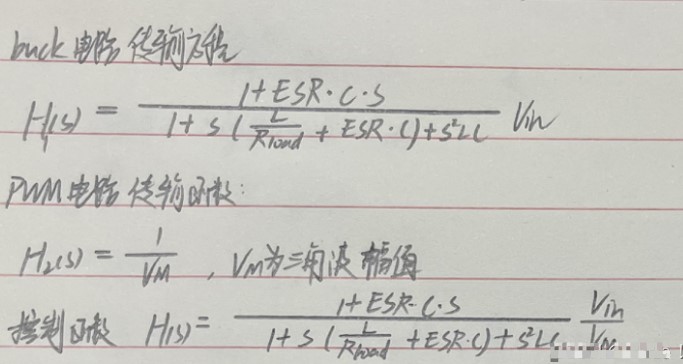 buck电路传输方程
H₁(s) = (1+ESR·C·S) / (1+S(L/Rload + ESR·C)+S²LC) Vin
PWM电路传输函数:
H₂(s) = 1/VM , VM为三角波幅值
控制函数 H(s) = (1+ESR·C·S) / (1+S(L/Rload +ESR·C)+S²LC) Vin/VM